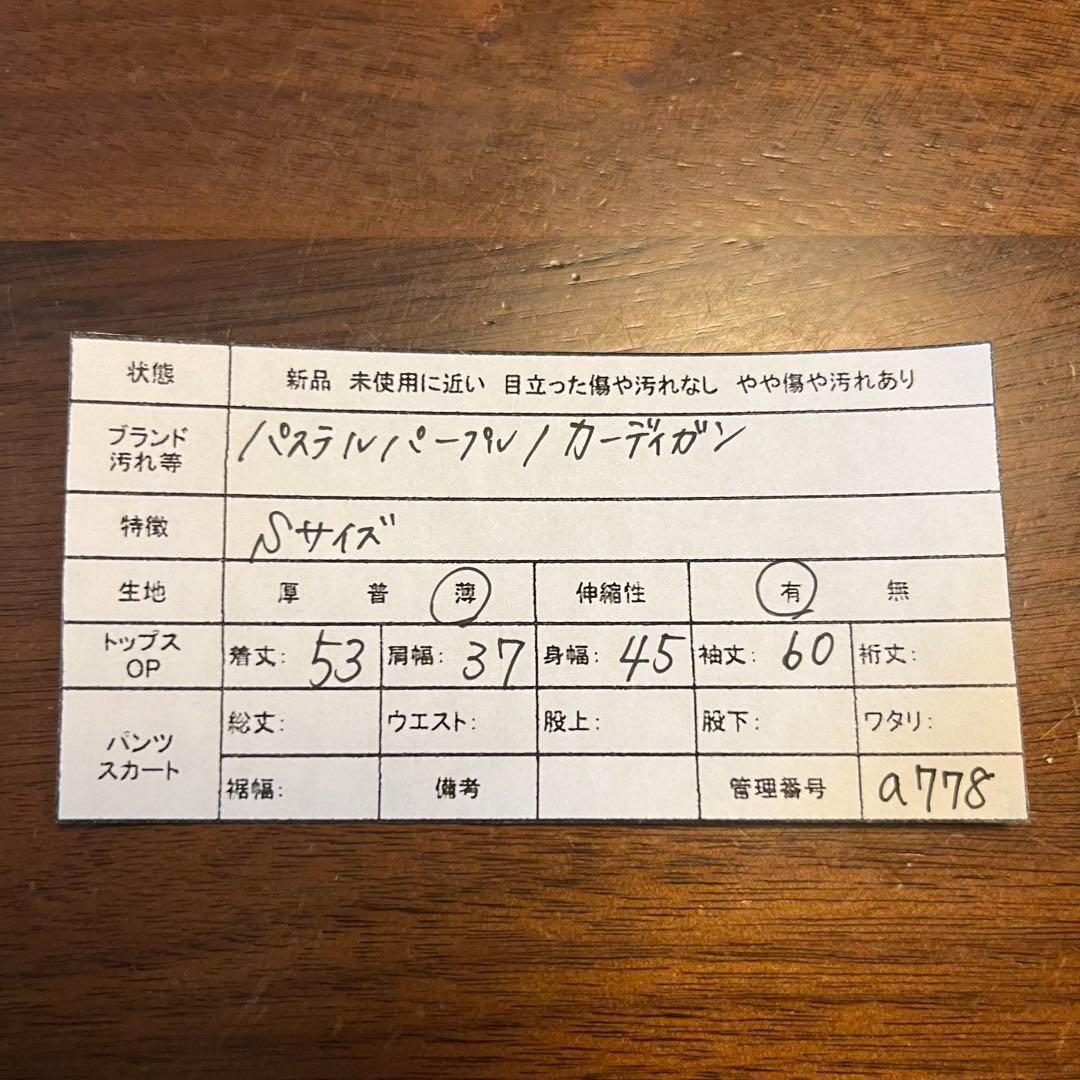 状態 新品 未使用に近い 目立った傷や汚れなし やや傷や汚れあり
ブランド
汚れ等
パステルパープル/カーディガン
特徴 Sサイズ
生地 厚 普 薄 伸縮性 有 無
トップス
OP
着丈: 53 肩幅: 37 身幅: 45 袖丈: 60 裄丈:
パンツ
スカート
総丈: ウエスト: 股上: 股下: ワタリ:
裾幅: 備考 管理番号 a778